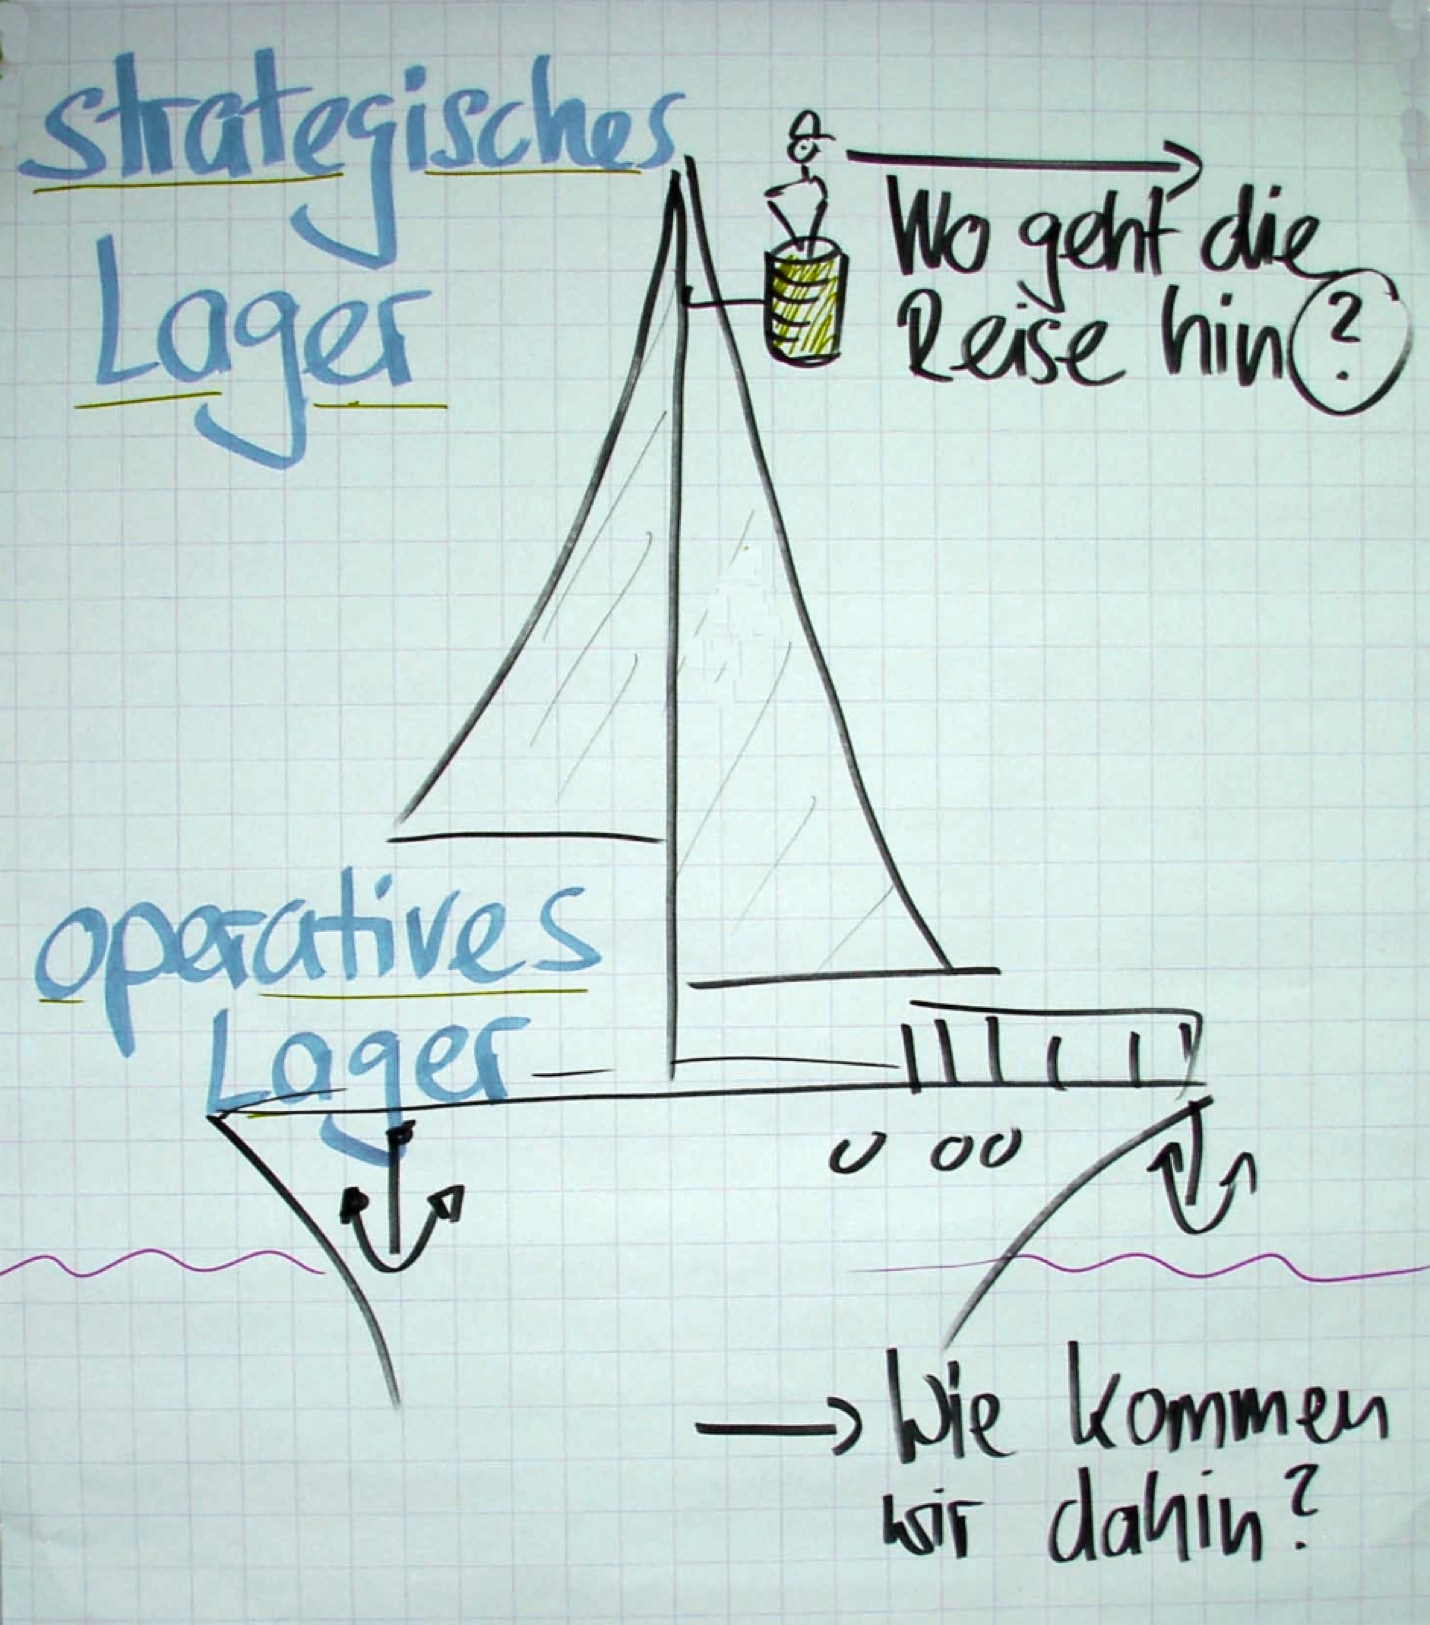 strategisches
Lager
Wo geht die
Reise hin?
operatives
Lager
→ Wie kommen
wir dahin?